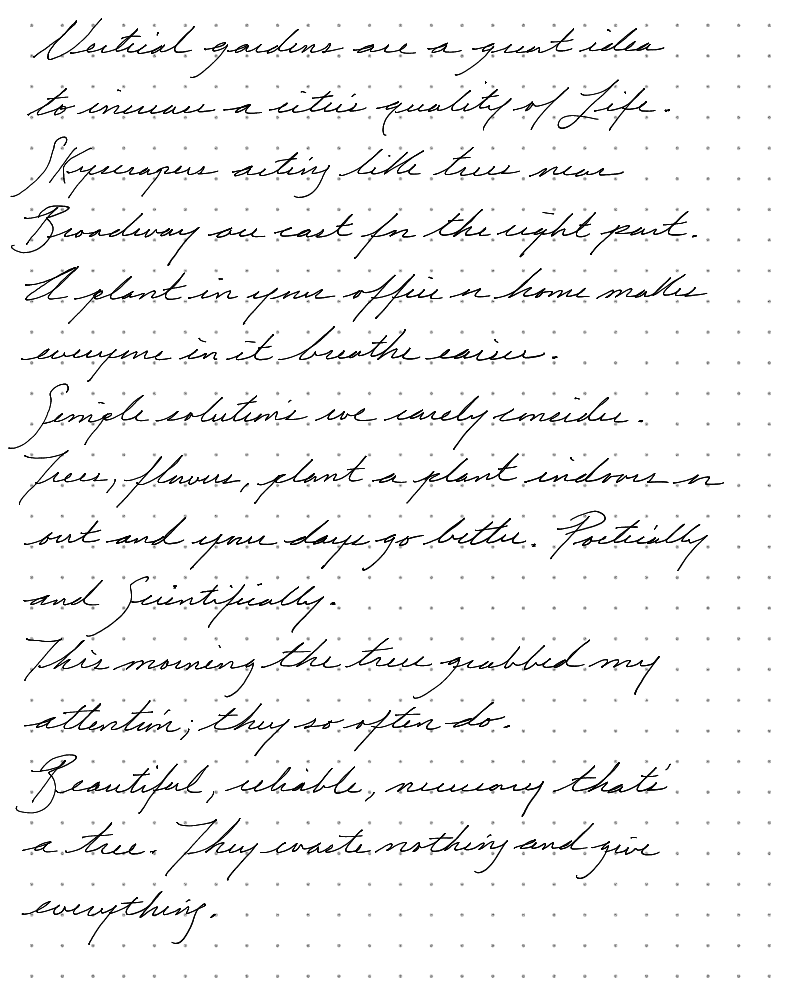 Vertical gardens are a great idea
to increase a citie's quality of Life.
SKyscrapers acting liKe trees near
Broadway are cast for the right part.
A plant in your office or home maKes
everyone in it breathe easier.
Simple solutions we rarely consider.
Trees, flowers, plant a plant indoors or
out and your days go better. Poetically
and Scientifically.
This morning the trees grabbed my
attention; they so often do.
Beautiful, reliable, necessary that's
a tree. They waste nothing and give
everything.